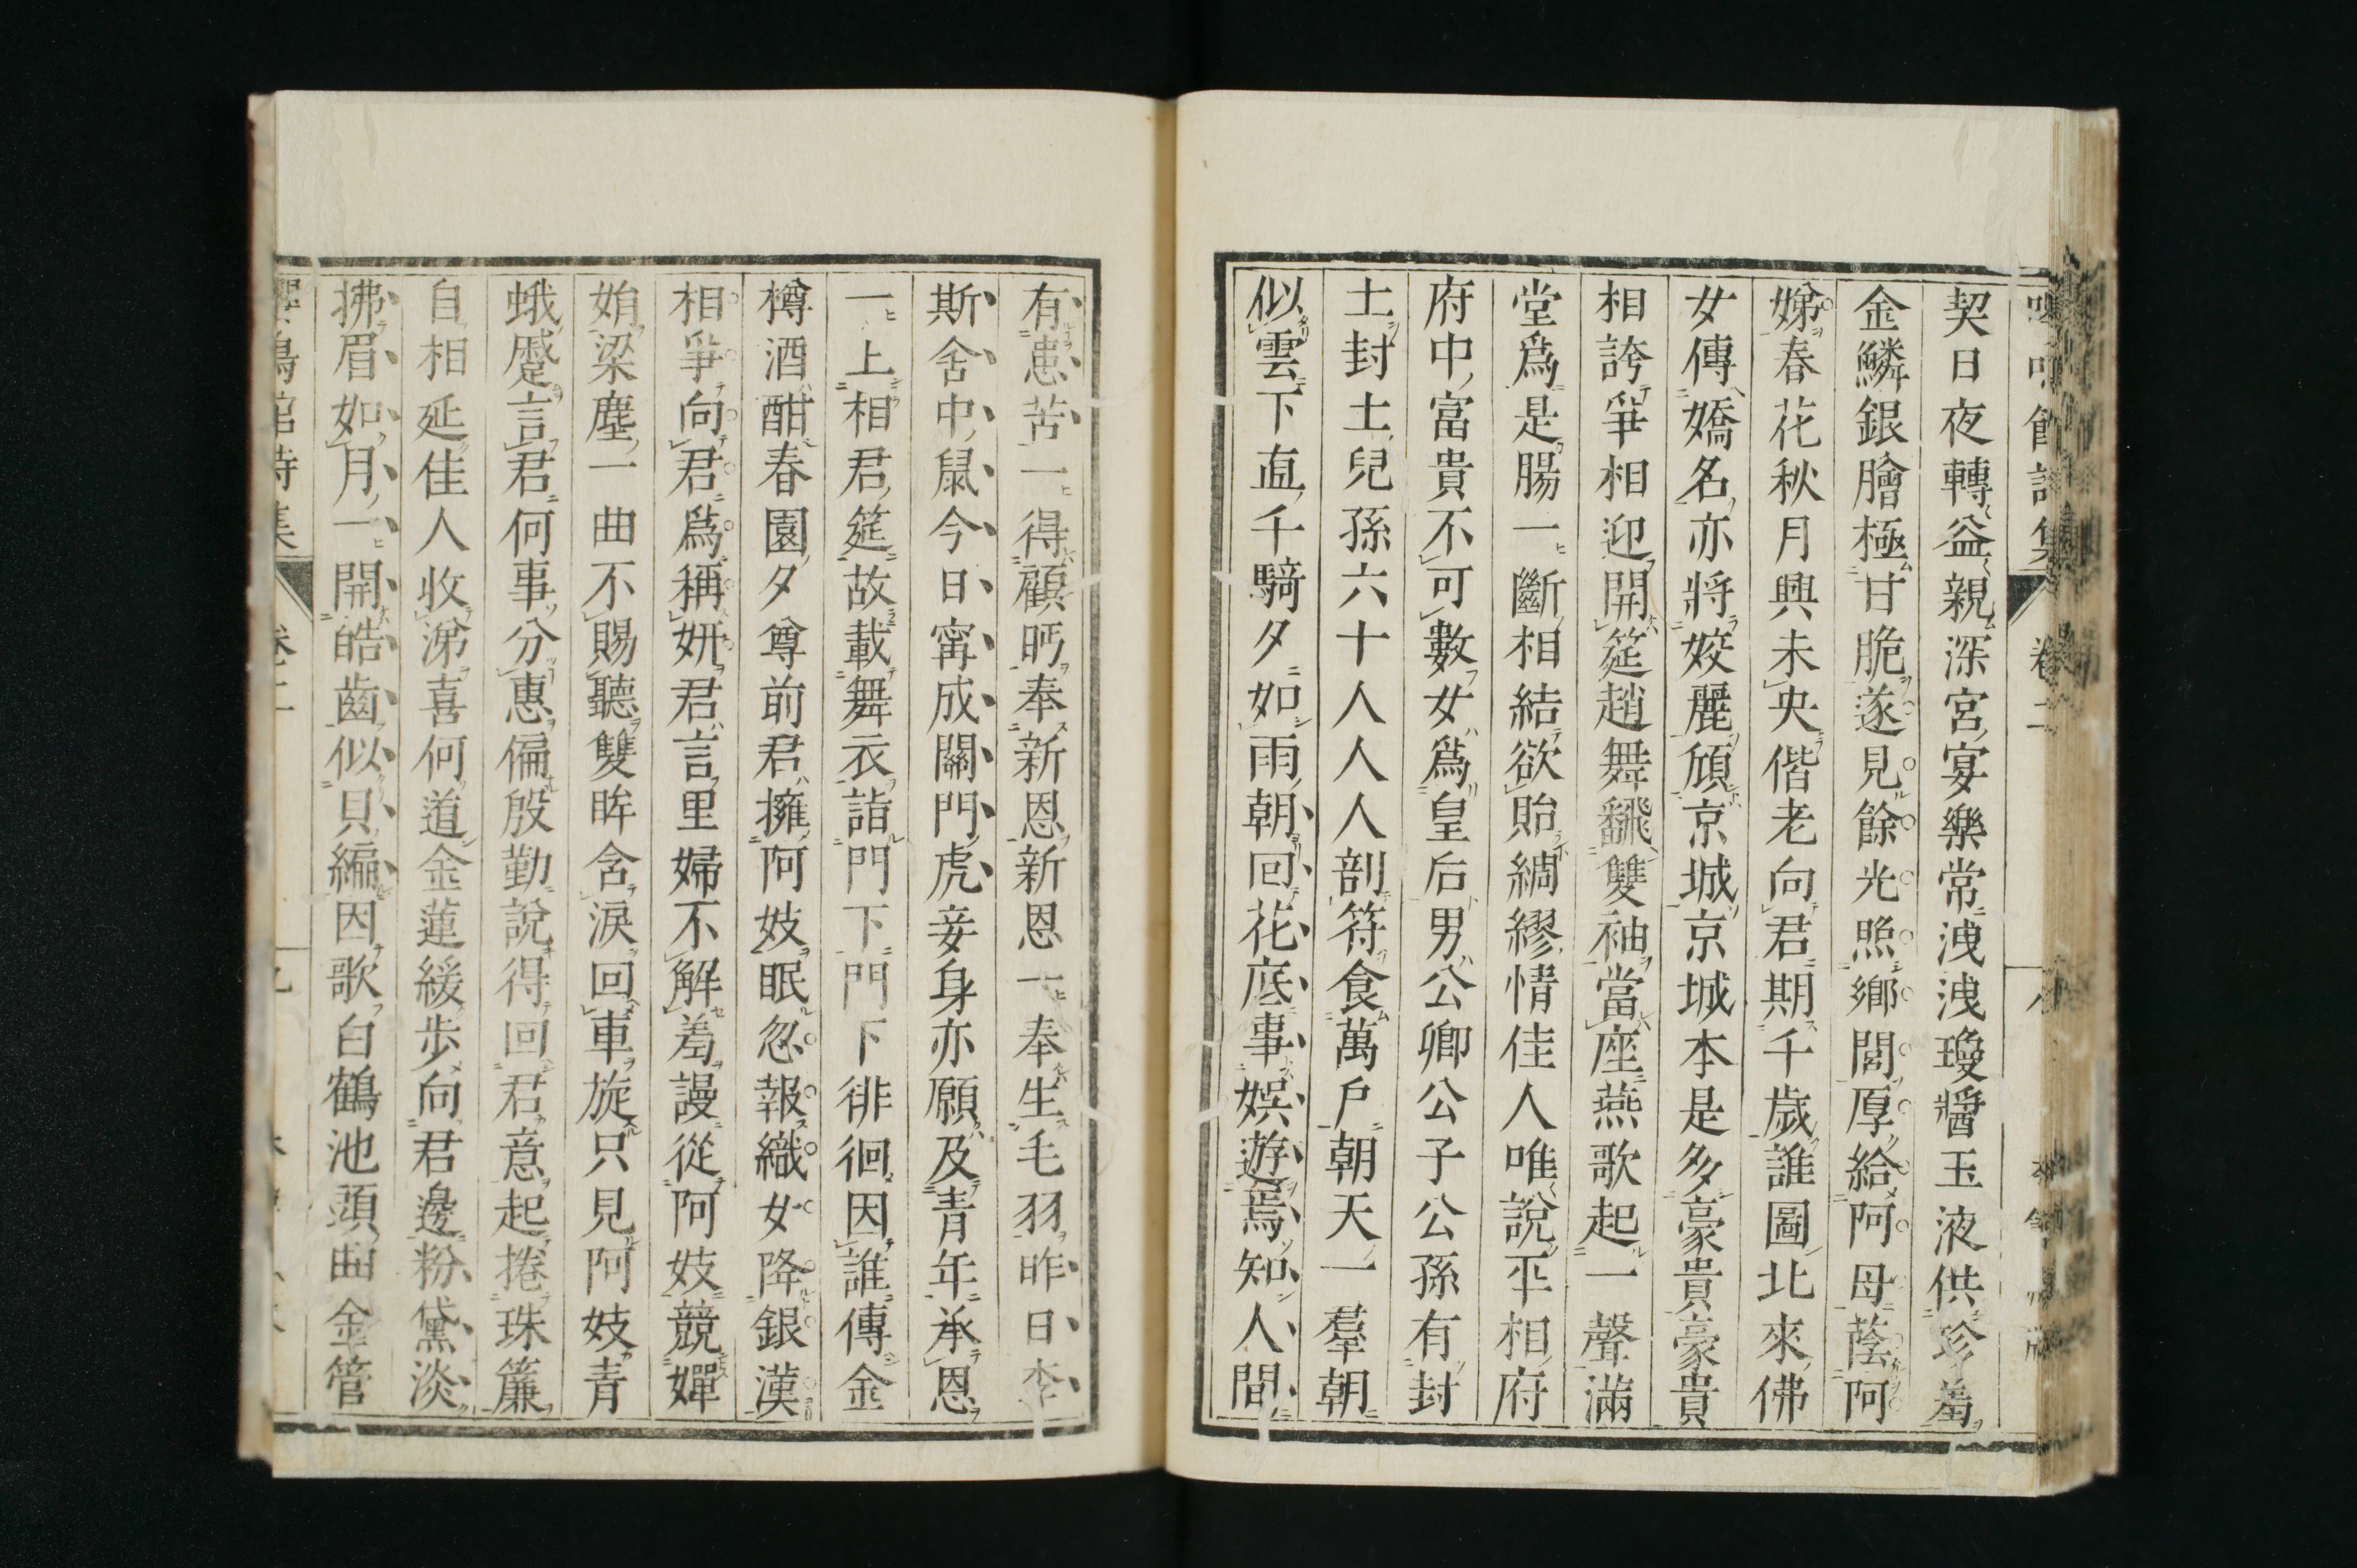 契日夜轉益親深宮宴樂常洩洩瓊醬玉液供珍羞
金鱗銀膾極甘脆遂見餘光照鄉閭厚給阿母蔭阿
娣春花秋月興未央偕老向君期千歲誰圖北來佛
女傳嬌名亦將姣麗傾京城京城本是多豪貴豪貴
相誇爭相迎開筵趙舞飜雙袖當座燕歌起一聲滿
堂爲是腸一斷相結欲貽綢繆情佳人唯說平相府
府中富貴不可數女爲皇后男公卿公子公孫有封
土封土兒孫六十人人人剖符食萬戶朝天一羣朝
似雲下直千騎夕如雨朝回花底事娛遊焉知人間
卷二
有患苦一得顧眄奉新恩新恩一奉生毛羽昨日李
斯舍中鼠今日寗成關門虎妾身亦願及青年承恩
一上相君筵故載舞衣詣門下門下徘徊因誰傳金
樽酒酣春園夕尊前君擁阿妓眠忽報織女降銀漢
相爭向君爲稱妍君言里婦不解羞謾從阿妓競嬋
娟梁塵一曲不賜聽雙眸含淚回車旋只見阿妓青
蛾蹙言君何事分惠偏殷勤說得回君意起捲珠簾
自相延佳人收涕喜何道金蓮緩步向君邊粉黛淡
拂眉如月一開皓齒似貝編因歌白鶴池頭曲金管
卷二